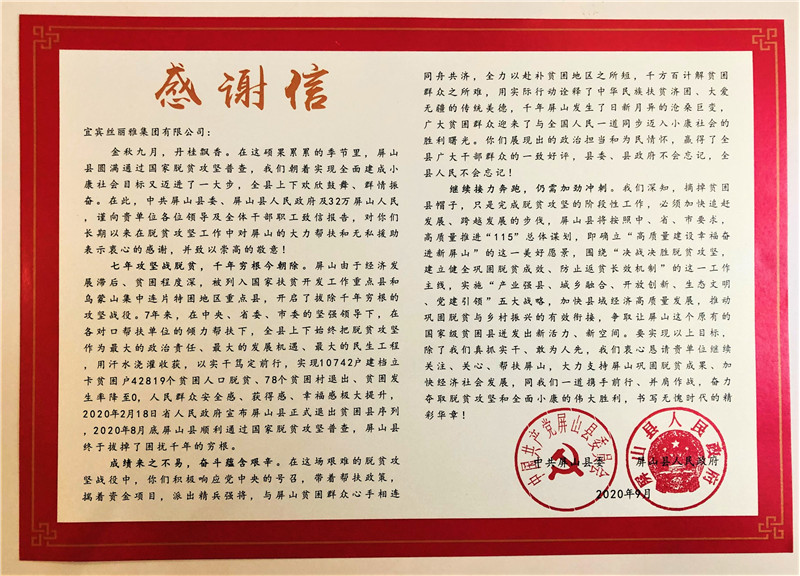 感谢信
宜宾丝丽雅集团有限公司：
金秋九月，丹桂飘香。在这硕果累累的季节里，屏山
县圆满通过国家脱贫攻坚普查，我们朝着实现全面建成小
康社会目标又迈进了一大步，全县上下欢欣鼓舞、群情振
奋。在此，中共屏山县委、屏山县人民政府及32万屏山人民
，谨向贵单位各位领导及全体干部职工致信报告，对你们
长期以来在脱贫攻坚工作中对屏山的大力帮扶和无私援助
表示衷心的感谢，并致以崇高的敬意！
七年攻坚战脱贫，千年穷根今朝除。屏山由于经济发
展滞后、贫困程度深，被列入国家扶贫开发工作重点县和
乌蒙山集中连片特困地区重点县，开启了拔除千年穷根的
攻坚战役。7年来，在中央、省委、市委的坚强领导下，在
各对口帮扶单位的倾力帮扶下，全县上下始终把脱贫攻坚
作为最大的政治责任、最大的发展机遇、最大的民生工程
，用汗水浇灌收获，以实干笃定前行，实现10742户建档立
卡贫困户42819个贫困人口脱贫、78个贫困村退出、贫困发
生率降至0，人民群众安全感、获得感、幸福感极大提升，
2020年2月18日省人民政府宣布屏山县正式退出贫困县序列
，2020年8月底屏山县顺利通过国家脱贫攻坚普查，屏山县
终于拔掉了困扰千年的穷根。
成绩来之不易，奋斗蕴含艰辛。在这场艰难的脱贫攻
坚战役中，你们积极响应党中央的号召，带着帮扶政策，
揣着资金项目，派出精兵强将，与屏山贫困群众心手相连
同舟共济，全力以赴补贫困地区之所短，千方百计解贫困
群众之所难，用实际行动诠释了中华民族扶贫济困、大爱
无疆的传统美德，千年屏山发生了日新月异的沧桑巨变，
广大贫困群众迎来了与全国人民一道同步迈入小康社会的
胜利曙光。你们展现出的政治担当和为民情怀，赢得了全
县广大干部群众的一致好评，县委、县政府不会忘记，全
县人民不会忘记！
继续接力奔跑，仍需加劲冲刺。我们深知，摘掉贫困
县帽子，只是完成脱贫攻坚的阶段性工作，必须加快追赶
发展、跨越发展的步伐，屏山县将按照中、省、市要求，
高质量推进“115”总体谋划，即确立“高质量建设幸福奋
进新屏山”的这一美好愿景，围绕“决战决胜脱贫攻坚，
建立健全巩固脱贫成效、防止返贫长效机制”的这一工作
主线，实施“产业强县、城乡融合、开放创新、生态文明
、党建引领”五大战略，加快县域经济高质量发展，推动
巩固脱贫与乡村振兴的有效衔接，争取让屏山这个原有的
国家级贫困县迸发出新活力、新空间。要实现以上目标，
除了我们真抓实干、敢为人先，我们衷心恳请贵单位继续
关注、关心、帮扶屏山，大力支持屏山巩固脱贫成果、加
快经济社会发展，同我们一道携手前行、并肩作战，奋力
夺取脱贫攻坚和全面小康的伟大胜利，书写无愧时代的精
彩华章！
中国共产党屏山县委员会
屏山县人民政府
中共屏山县委 屏山县人民政府
2020年9月